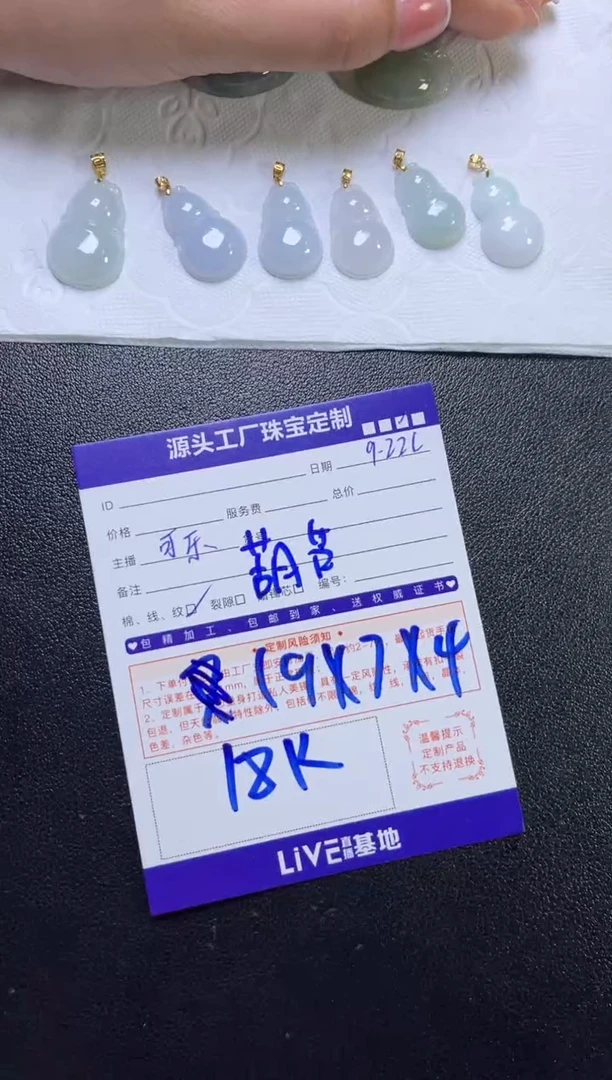 源头工厂珠宝定制
ID 日期 9-22
价格 服务费 总价
主播 可乐
备注 葫芦
棉、线、纹☑ 裂隙☐ ☐ 编号:
♥包精加工、包邮到家、送权威证书♥
定制风险须知
1、下单付
尺寸误差在
2、定制属于
包退,但天
色差,杂色等。
19X7X4
18K
温馨提示
定制产品
不支持退换
LiVE直播基地